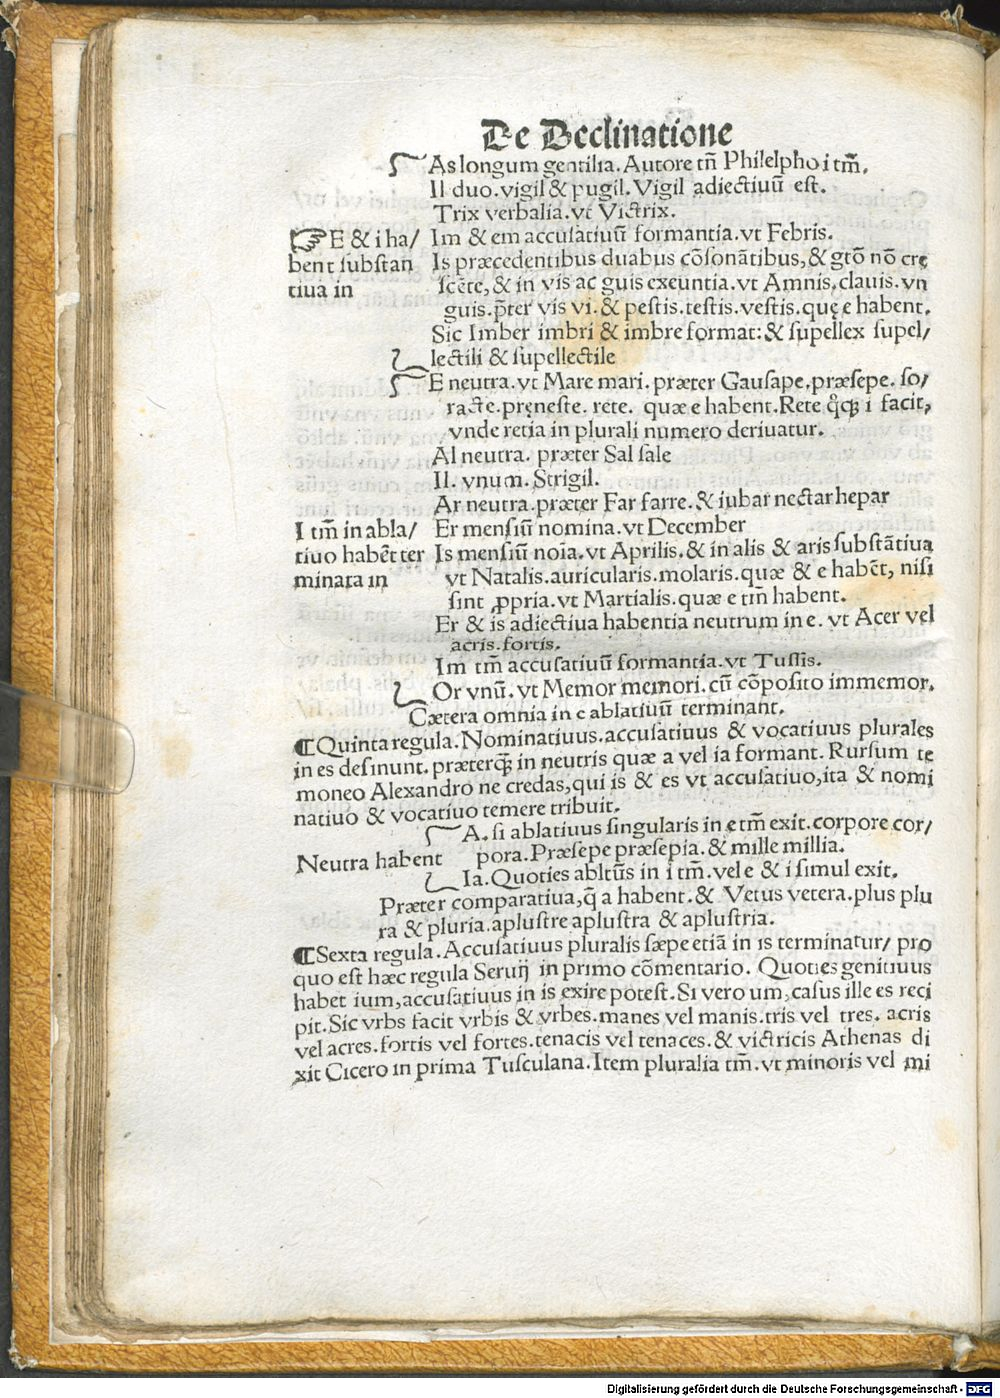 De Declinatione
As longum gentilia. Autore tñ Philelpho i tm̃.
Il duo. vigil & pugil. Vigil adiectiuũ est.
Trix verbalia. vt Victrix.
☞ E & i ha/
bent substan
tiua in
Im & em accusatiuũ formantia. vt Febris.
Is præcedentibus duabus cõsonãtibus, & gtõ nõ cre
scẽte, & in vis ac guis exeuntia. vt Amnis. clauis. vn
guis. p̃ter vis vi. & pestis. testis. vestis. quę e habent.
Sic Imber imbri & imbre format: & supellex supel/
lectili & supellectile
E neutra. vt Mare mari. præter Gausape. præsepe. so/
racte. pręneste. rete. quæ e habent. Rete q̊q̃ i facit,
vnde retia in plurali numero deriuatur.
Al neutra. præter Sal sale
Il. vnum. Strigil.
Ar neutra. præter Far farre. & iubar nectar hepar
I tm̃ in abla/
tiuo habẽt ter
minata in
Er mensiũ nomina. vt December
Is mensiũ noĩa. vt Aprilis. & in alis & aris substãtiua
vt Natalis. auricularis. molaris. quæ & e habẽt, nisi
sint ꝓpria. vt Martialis. quæ e tm̃ habent.
Er & is adiectiua habentia neutrum in e. vt Acer vel
acris. fortis.
Im tm̃ accusatiuũ formantia. vt Tussis.
Or vnũ. vt Memor memori. cũ cõposito immemor.
Cætera omnia in e ablatiuũ terminant.
¶ Quinta regula. Nominatiuus. accusatiuus & vocatiuus plurales
in es desinunt. præterq̃ in neutris quæ a vel ia formant. Rursum te
moneo Alexandro ne credas, qui is & es vt accusatiuo, ita & nomi
natiuo & vocatiuo temere tribuit.
Neutra habent
A. si ablatiuus singularis in e tm̃ exit. corpore cor/
pora. Præsepe præsepia. & mille millia.
Ia. Quoties abltũs in i tm̃. vel e & i simul exit.
Præter comparatiua, q̃ a habent. & Vetus vetera. plus plu
ra & pluria. aplustre aplustra & aplustria.
¶ Sexta regula. Accusatiuus pluralis sæpe etiã in is terminatur/ pro
quo est hæc regula Seruij in primo cõmentario. Quoties genitiuus
habet ium, accusatiuus in is exire potest. Si vero um, casus ille es reci
pit. Sic vrbs facit vrbis & vrbes. manes vel manis. tris vel tres. acris
vel acres. fortis vel fortes. tenacis vel tenaces. & victricis Athenas di
xit Cicero in prima Tusculana. Item pluralia tm̃. vt minoris vel mi
Digitalisierung gefördert durch die Deutsche Forschungsgemeinschaft - DFG